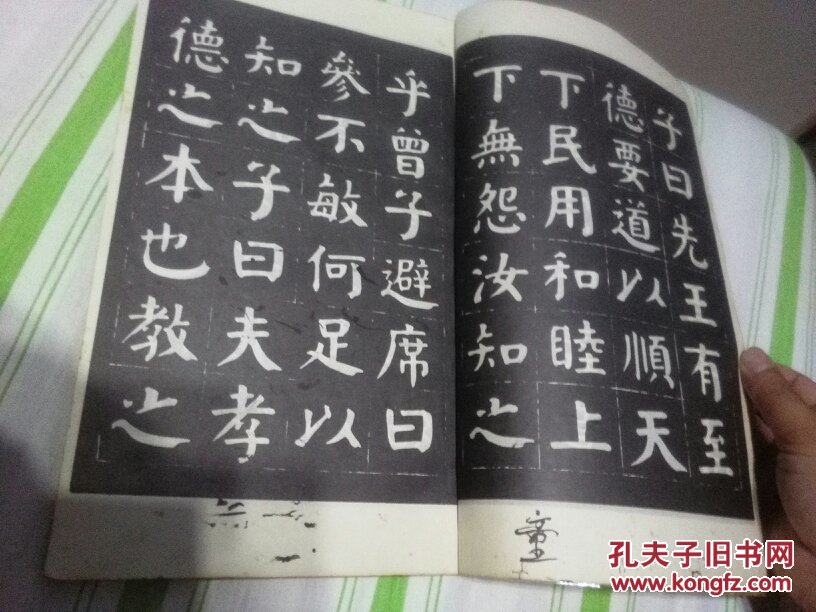 子曰先王有至
德要道以順天
下民用和睦上
下無怨汝知之
乎曾子避席曰
參不敏何足以
知之子曰夫孝
德之本也教之
童
孔夫子旧书网
www.kongfz.com